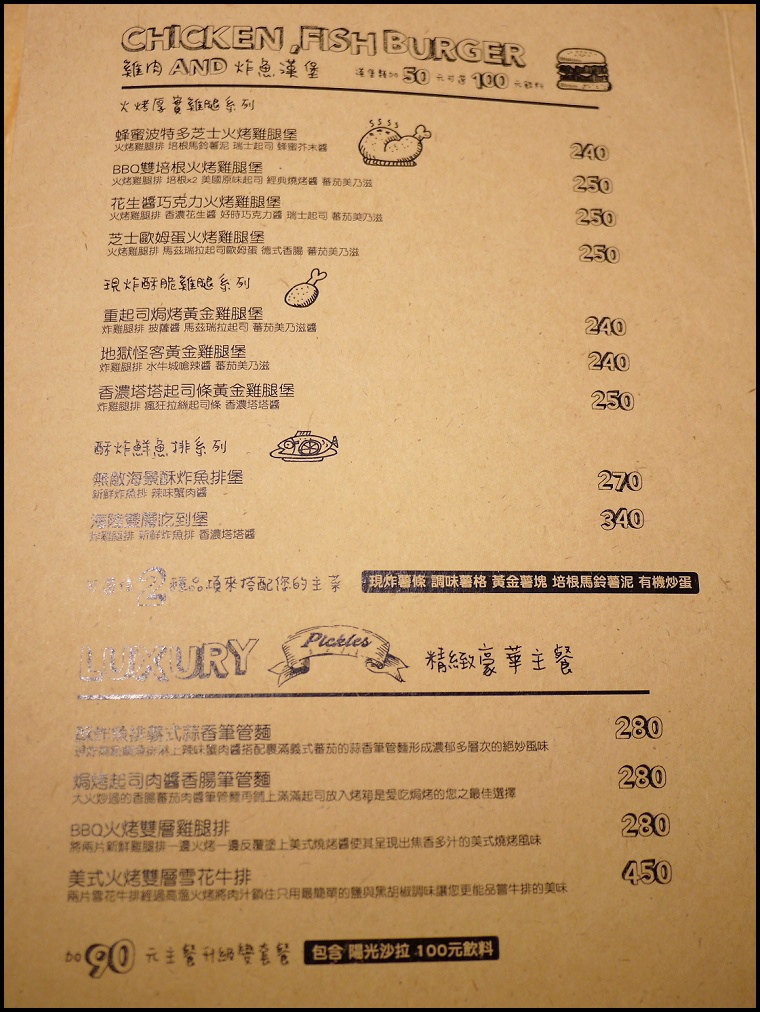 CHICKEN ,FISH BURGER
雞肉 AND 炸魚漢堡 漢堡類加50元可選100元飲料
火烤厚實雞腿系列
蜂蜜波特多芝士火烤雞腿堡 240
火烤雞腿排 培根馬鈴薯泥 瑞士起司 蜂蜜芥末醬
BBQ雙培根火烤雞腿堡 250
火烤雞腿排 培根x2 美國原味起司 經典燒烤醬 蕃茄美乃滋
花生醬巧克力火烤雞腿堡 250
火烤雞腿排 香濃花生醬 好時巧克力醬 瑞士起司 蕃茄美乃滋
芝士歐姆蛋火烤雞腿堡 250
火烤雞腿排 馬茲瑞拉起司歐姆蛋 德式香腸 蕃茄美乃滋
現炸酥脆雞腿系列
重起司焗烤黃金雞腿堡 240
炸雞腿排 披薩醬 馬茲瑞拉起司 蕃茄美乃滋醬
地獄怪客黃金雞腿堡 240
炸雞腿排 水牛城嗆辣醬 蕃茄美乃滋
香濃塔塔起司條黃金雞腿堡 250
炸雞腿排 瘋狂拉絲起司條 香濃塔塔醬
酥炸鮮魚排系列
無敵海景酥炸魚排堡 270
新鮮炸魚排 辣味蟹肉醬
海陸雙層吃到堡 340
炸雞腿排 新鮮炸魚排 香濃塔塔醬
2種品項來搭配您的主菜 現炸薯條 調味薯格 黃金薯塊 培根馬鈴薯泥 有機炒蛋
LUXURY Pickles 精緻豪華主餐
酥炸魚排義式蒜香筆管麵 280
淋上辣味蟹肉醬搭配裹滿義式蕃茄的蒜香筆管麵形成濃郁多層次的絕妙風味
焗烤起司肉醬香腸筆管麵 280
大火炒過的香腸蕃茄肉醬筆管麵再鋪上滿滿起司放入烤箱是愛吃焗烤的您之最佳選擇
BBQ火烤雙層雞腿排 280
將兩片新鮮雞腿排一邊火烤一邊反覆塗上美式燒烤醬使其呈現出焦香多汁的美式燒烤風味
美式火烤雙層雪花牛排 450
兩片雪花牛排經過高溫火烤將肉汁鎖住只用最簡單的鹽與黑胡椒調味讓您更能品嘗牛排的美味
加90元主餐升級變套餐 包含 陽光沙拉 100元飲料